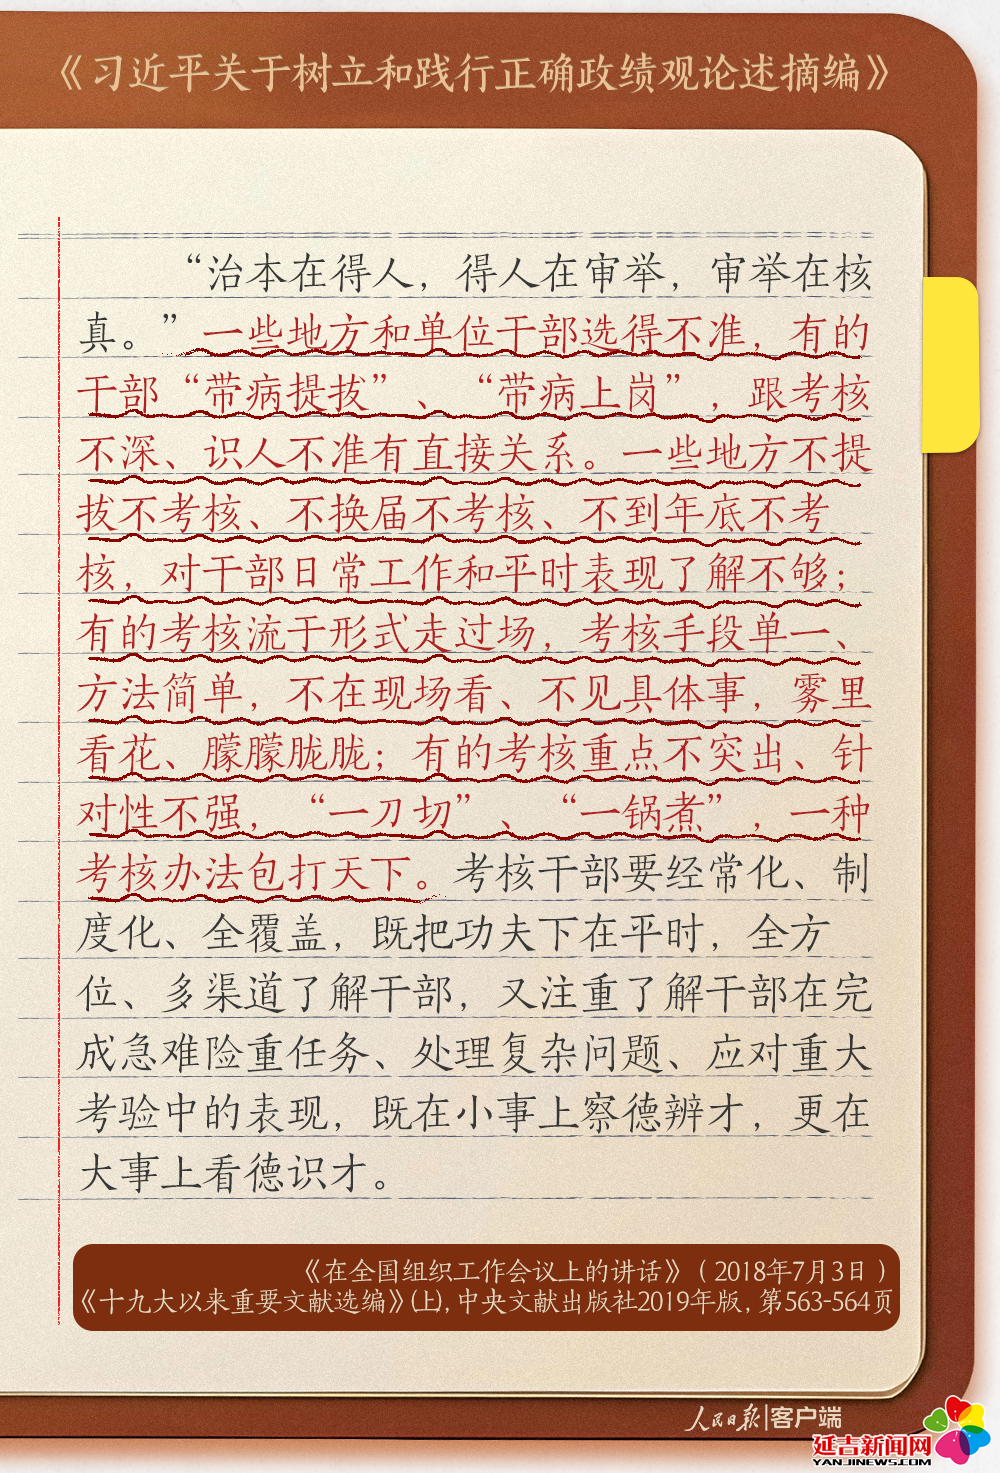 《习近平关于树立和践行正确政绩观论述摘编》
“治本在得人，得人在审举，审举在核
真。”一些地方和单位干部选得不准，有的
干部“带病提拔”、“带病上岗”，跟考核
不深、识人不准有直接关系。一些地方不提
拔不考核、不换届不考核、不到年底不考
核，对干部日常工作和平时表现了解不够；
有的考核流于形式走过场，考核手段单一、
方法简单，不在现场看、不见具体事，雾里
看花、朦朦胧胧；有的考核重点不突出、针
对性不强，“一刀切”、“一锅煮”，一种
考核办法包打天下。考核干部要经常化、制
度化、全覆盖，既把功夫下在平时，全方
位、多渠道了解干部，又注重了解干部在完
成急难险重任务、处理复杂问题、应对重大
考验中的表现，既在小事上察德辨才，更在
大事上看德识才。
《在全国组织工作会议上的讲话》（2018年7月3日）
《十九大以来重要文献选编》（上），中央文献出版社2019年版，第563-564页
人民日报|客户端
延吉新闻网
YANJINEWS.COM